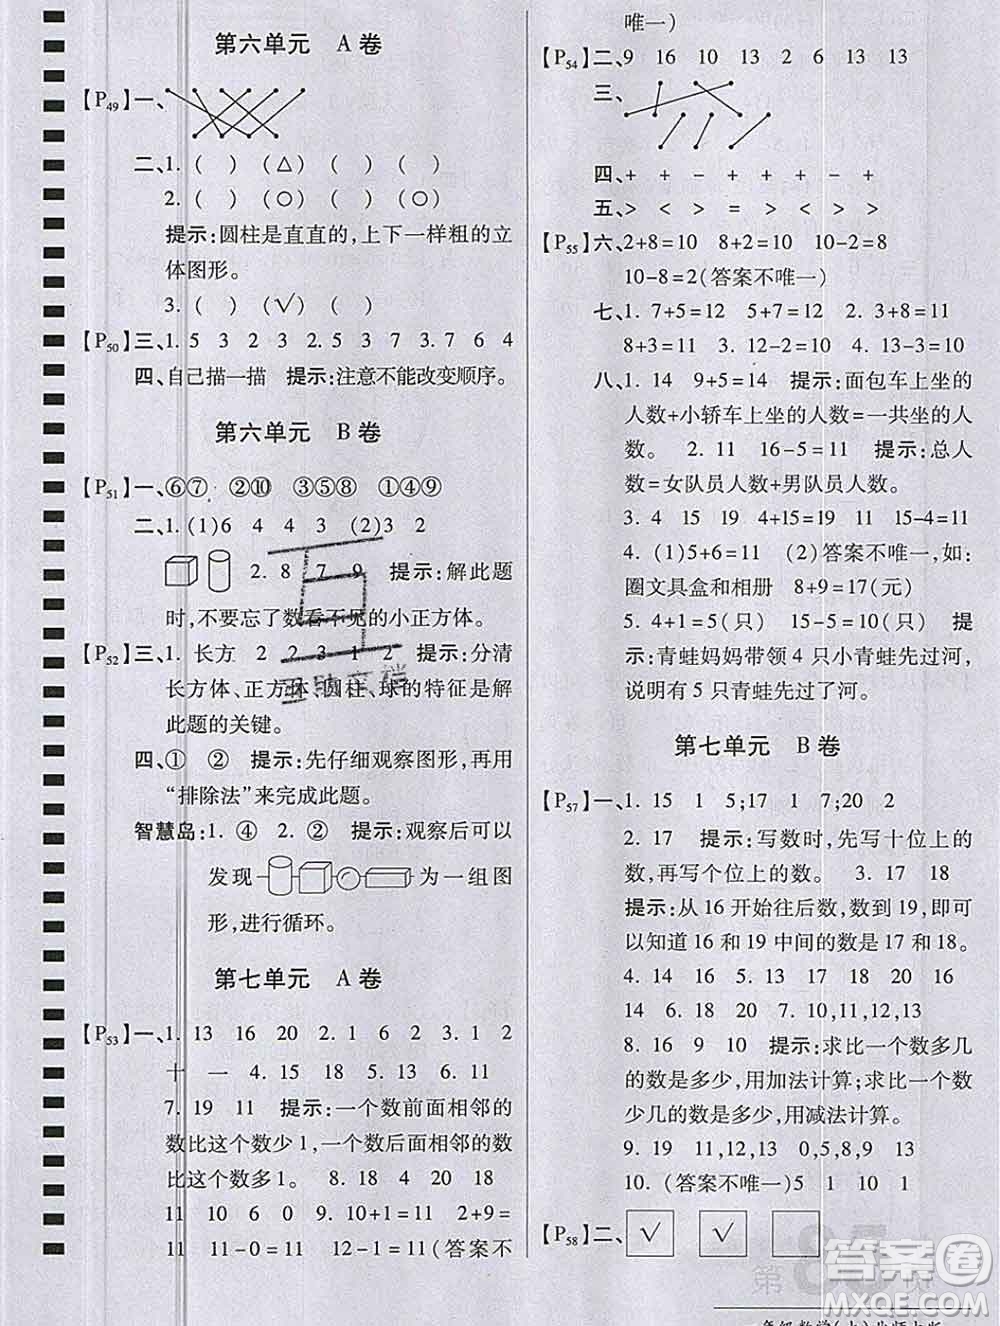 第六单元 A 卷
【P49】一、
二、1. ( ) (△) ( ) ( )
2. ( ) (○) ( ) (○)
提示:圆柱是直直的,上下一样粗的立
体图形。
3. ( ) (√) ( ) ( )
【P50】三、1. 5 3 2 3 2. 5 3 7 3. 7 6 4
四、自己描一描 提示:注意不能改变顺序。
第六单元 B 卷
【P51】一、⑥⑦ ②⑩ ③⑤⑧ ①④⑨
二、1. (1)6 4 4 3 (2)3 2
2. 8 7 9 提示:解此题
时,不要忘了数看不见的小正方体。
【P52】三、1. 长方 2 2 3 1 2 提示:分清
长方体、正方体、圆柱、球的特征是解
此题的关键。
四、① ② 提示:先仔细观察图形,再用
“排除法”来完成此题。
智慧岛:1. ④ 2. ② 提示:观察后可以
发现 为一组图
形,进行循环。
第七单元 A 卷
【P53】一、1. 13 16 20 2. 1 6 2 3. 1 2
十 一 4. 15 18 5. 13 6. 15 18
7. 19 11 提示:一个数前面相邻的
数比这个数少 1,一个数后面相邻的数
比这个数多 1。 8. 18 4 20 18
11 10 6 0 9. 10+1=11 2+9=
11 11-0=11 12-1=11(答案不
唯一)
【P54】二、9 16 10 13 2 6 13 13
三、
四、+ + - + + + - +
五、> < > = > < > >
【P55】六、2+8=10 8+2=10 10-2=8
10-8=2(答案不唯一)
七、1. 7+5=12 5+7=12 2. 3+8=11
8+3=11 3. 12-2=10 4. 19-8=11
八、1. 14 9+5=14 提示:面包车上坐的
人数+小轿车上坐的人数=一共坐的人
数。 2. 11 16-5=11 提示:总人
数=女队员人数+男队员人数。
3. 4 15 19 4+15=19 15-4=11
4. (1)5+6=11 (2)答案不唯一,如:
圈文具盒和相册 8+9=17(元)
5. 4+1=5(只) 15-5=10(只) 提
示:青蛙妈妈带领 4 只小青蛙先过河,
说明有 5 只青蛙先过了河。
第七单元 B 卷
【P57】一、1. 15 1 5;17 1 7;20 2
2. 17 提示:写数时,先写十位上的
数,再写个位上的数。 3. 17 18
提示:从 16 开始往后数,数到 19,即可
以知道 16 和 19 中间的数是 17 和 18。
4. 14 5. 17 15 18 20 16
14 6. 18 20 7. 10,11,12,13
8. 16 9 10 提示:求比一个数多几
的数是多少,用加法计算;求比一个数
少几的数是多少,用减法计算。
9. 19 11,12,13 0,5,8,9 13
10. (答案不唯一)5 1 10 1
【P58】二、 √ √ √
答案圈
MXQE.COM